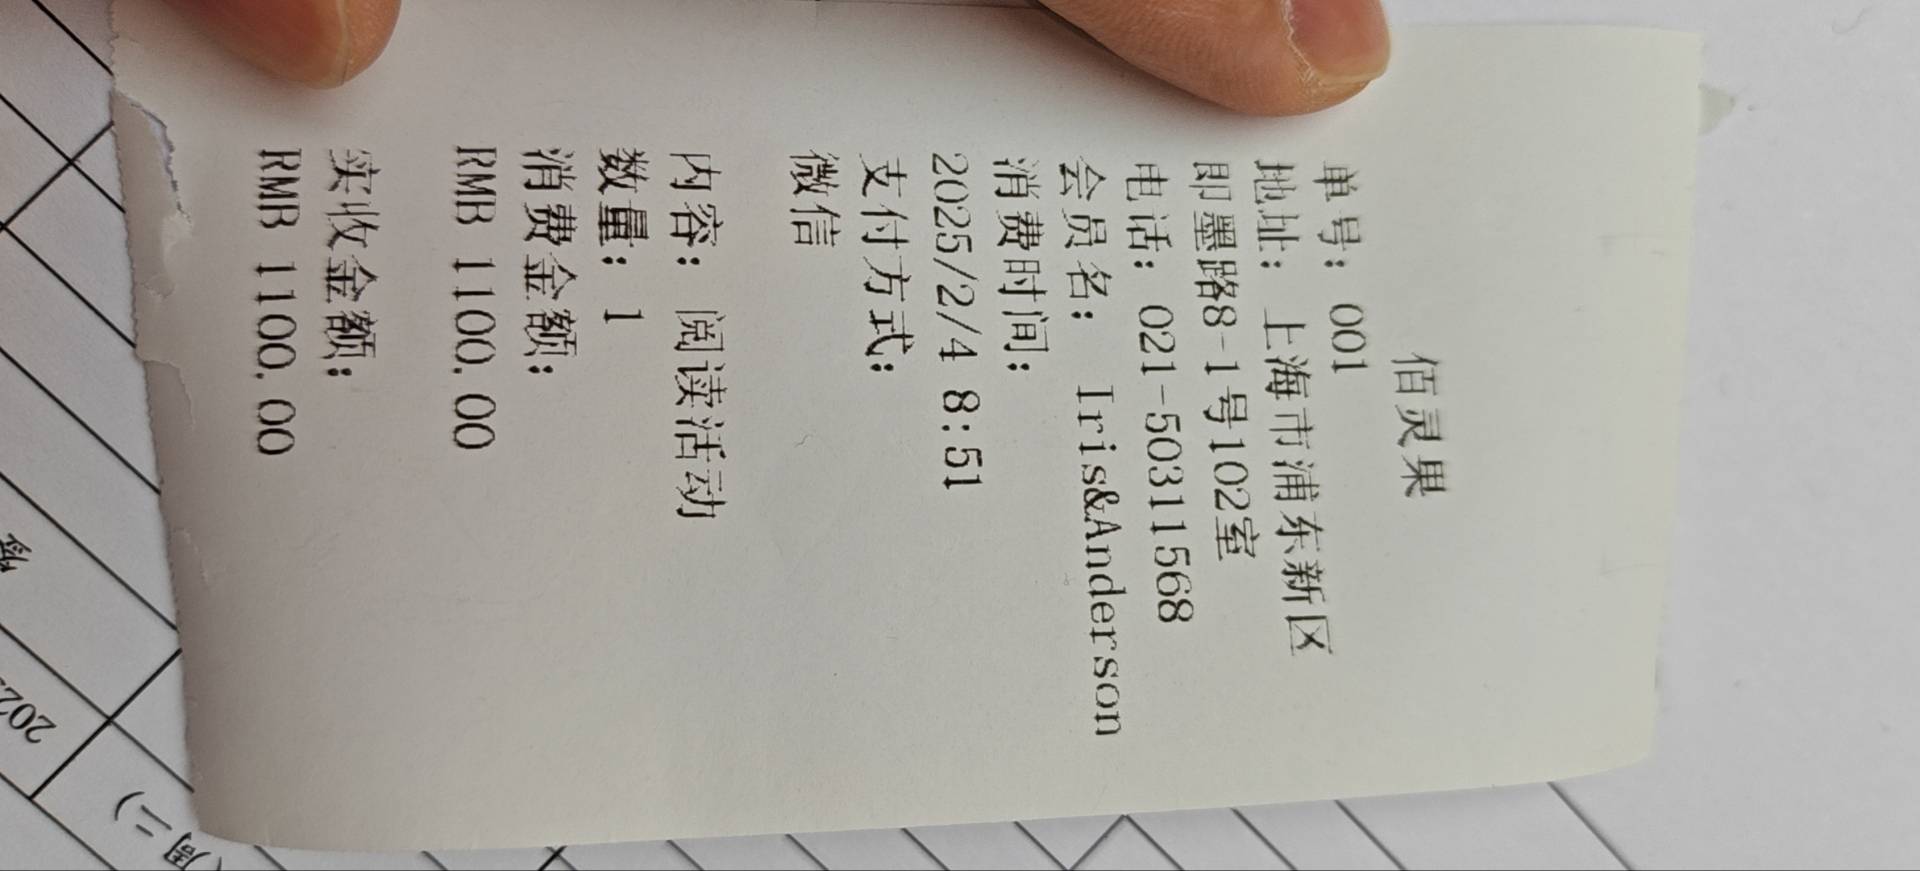 佰灵果
单号：001
地址： 上海市浦东新区
即墨路8-1号102室
电话：021-50311568
会员名： Iris&Anderson
消费时间：
2025/2/4 8:51
支付方式：
微信
内容： 阅读活动
数量： 1
消费金额：
RMB 1100.00
实收金额：
RMB 1100.00
(周二)